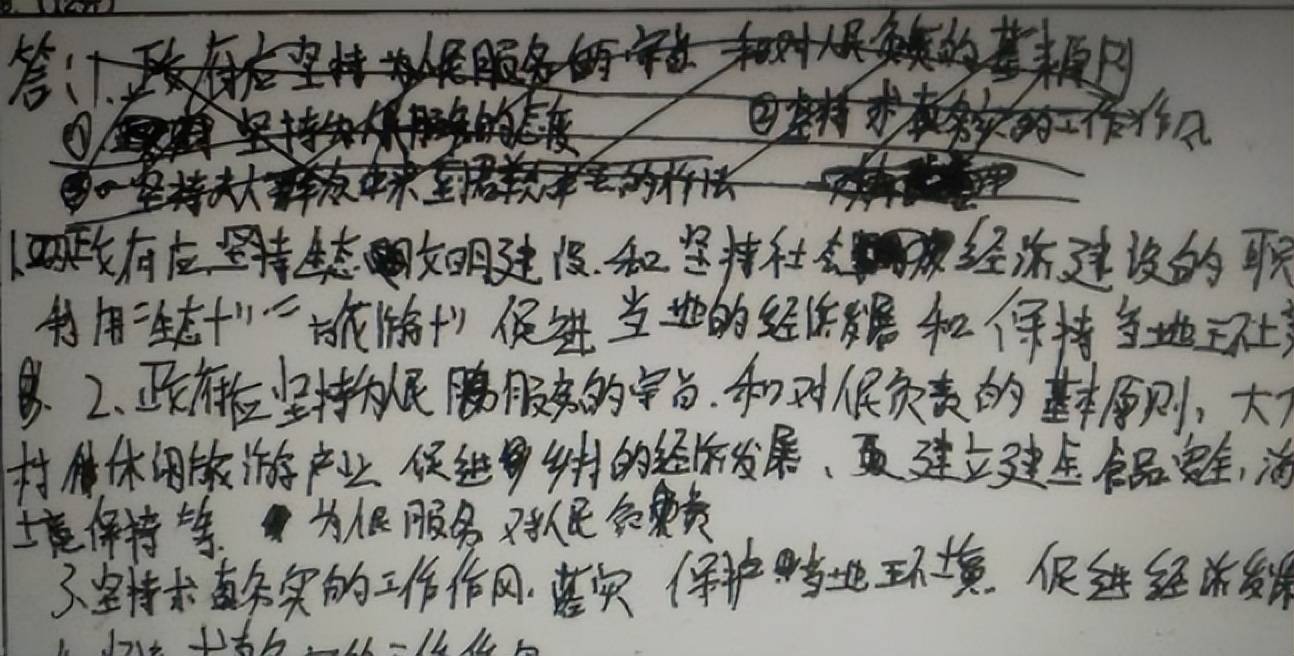 答:1.政府应坚持为人民服务的宗旨 和对人民负责的基本原则
① 坚持为人民服务的态度 ②坚持求真务实的工作作风
③ 坚持从群众中来到群众中去的作法
1.政府应坚持生态文明建设.和坚持社会经济建设的职
利用"生态+""旅游+"促进当地的经济发展和保持当地环境
2、政府应坚持为人民服务的宗旨.和对人民负责的基本原则,大
村休闲旅游产业 促进乡村的经济发展、建立建全食品安全,
境保持等. 为人民服务 对人民负责
3、坚持求真务实的工作作风.落实 保护当地环境. 促进经济发展